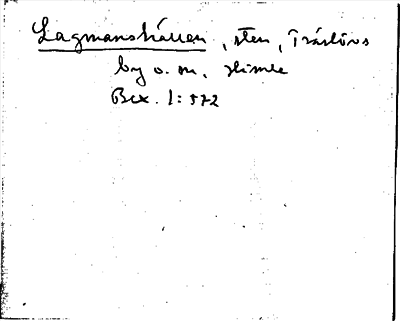 Lagmanshällen, sten, Träslövs
by o. sn, Himle
Bex. 1:572